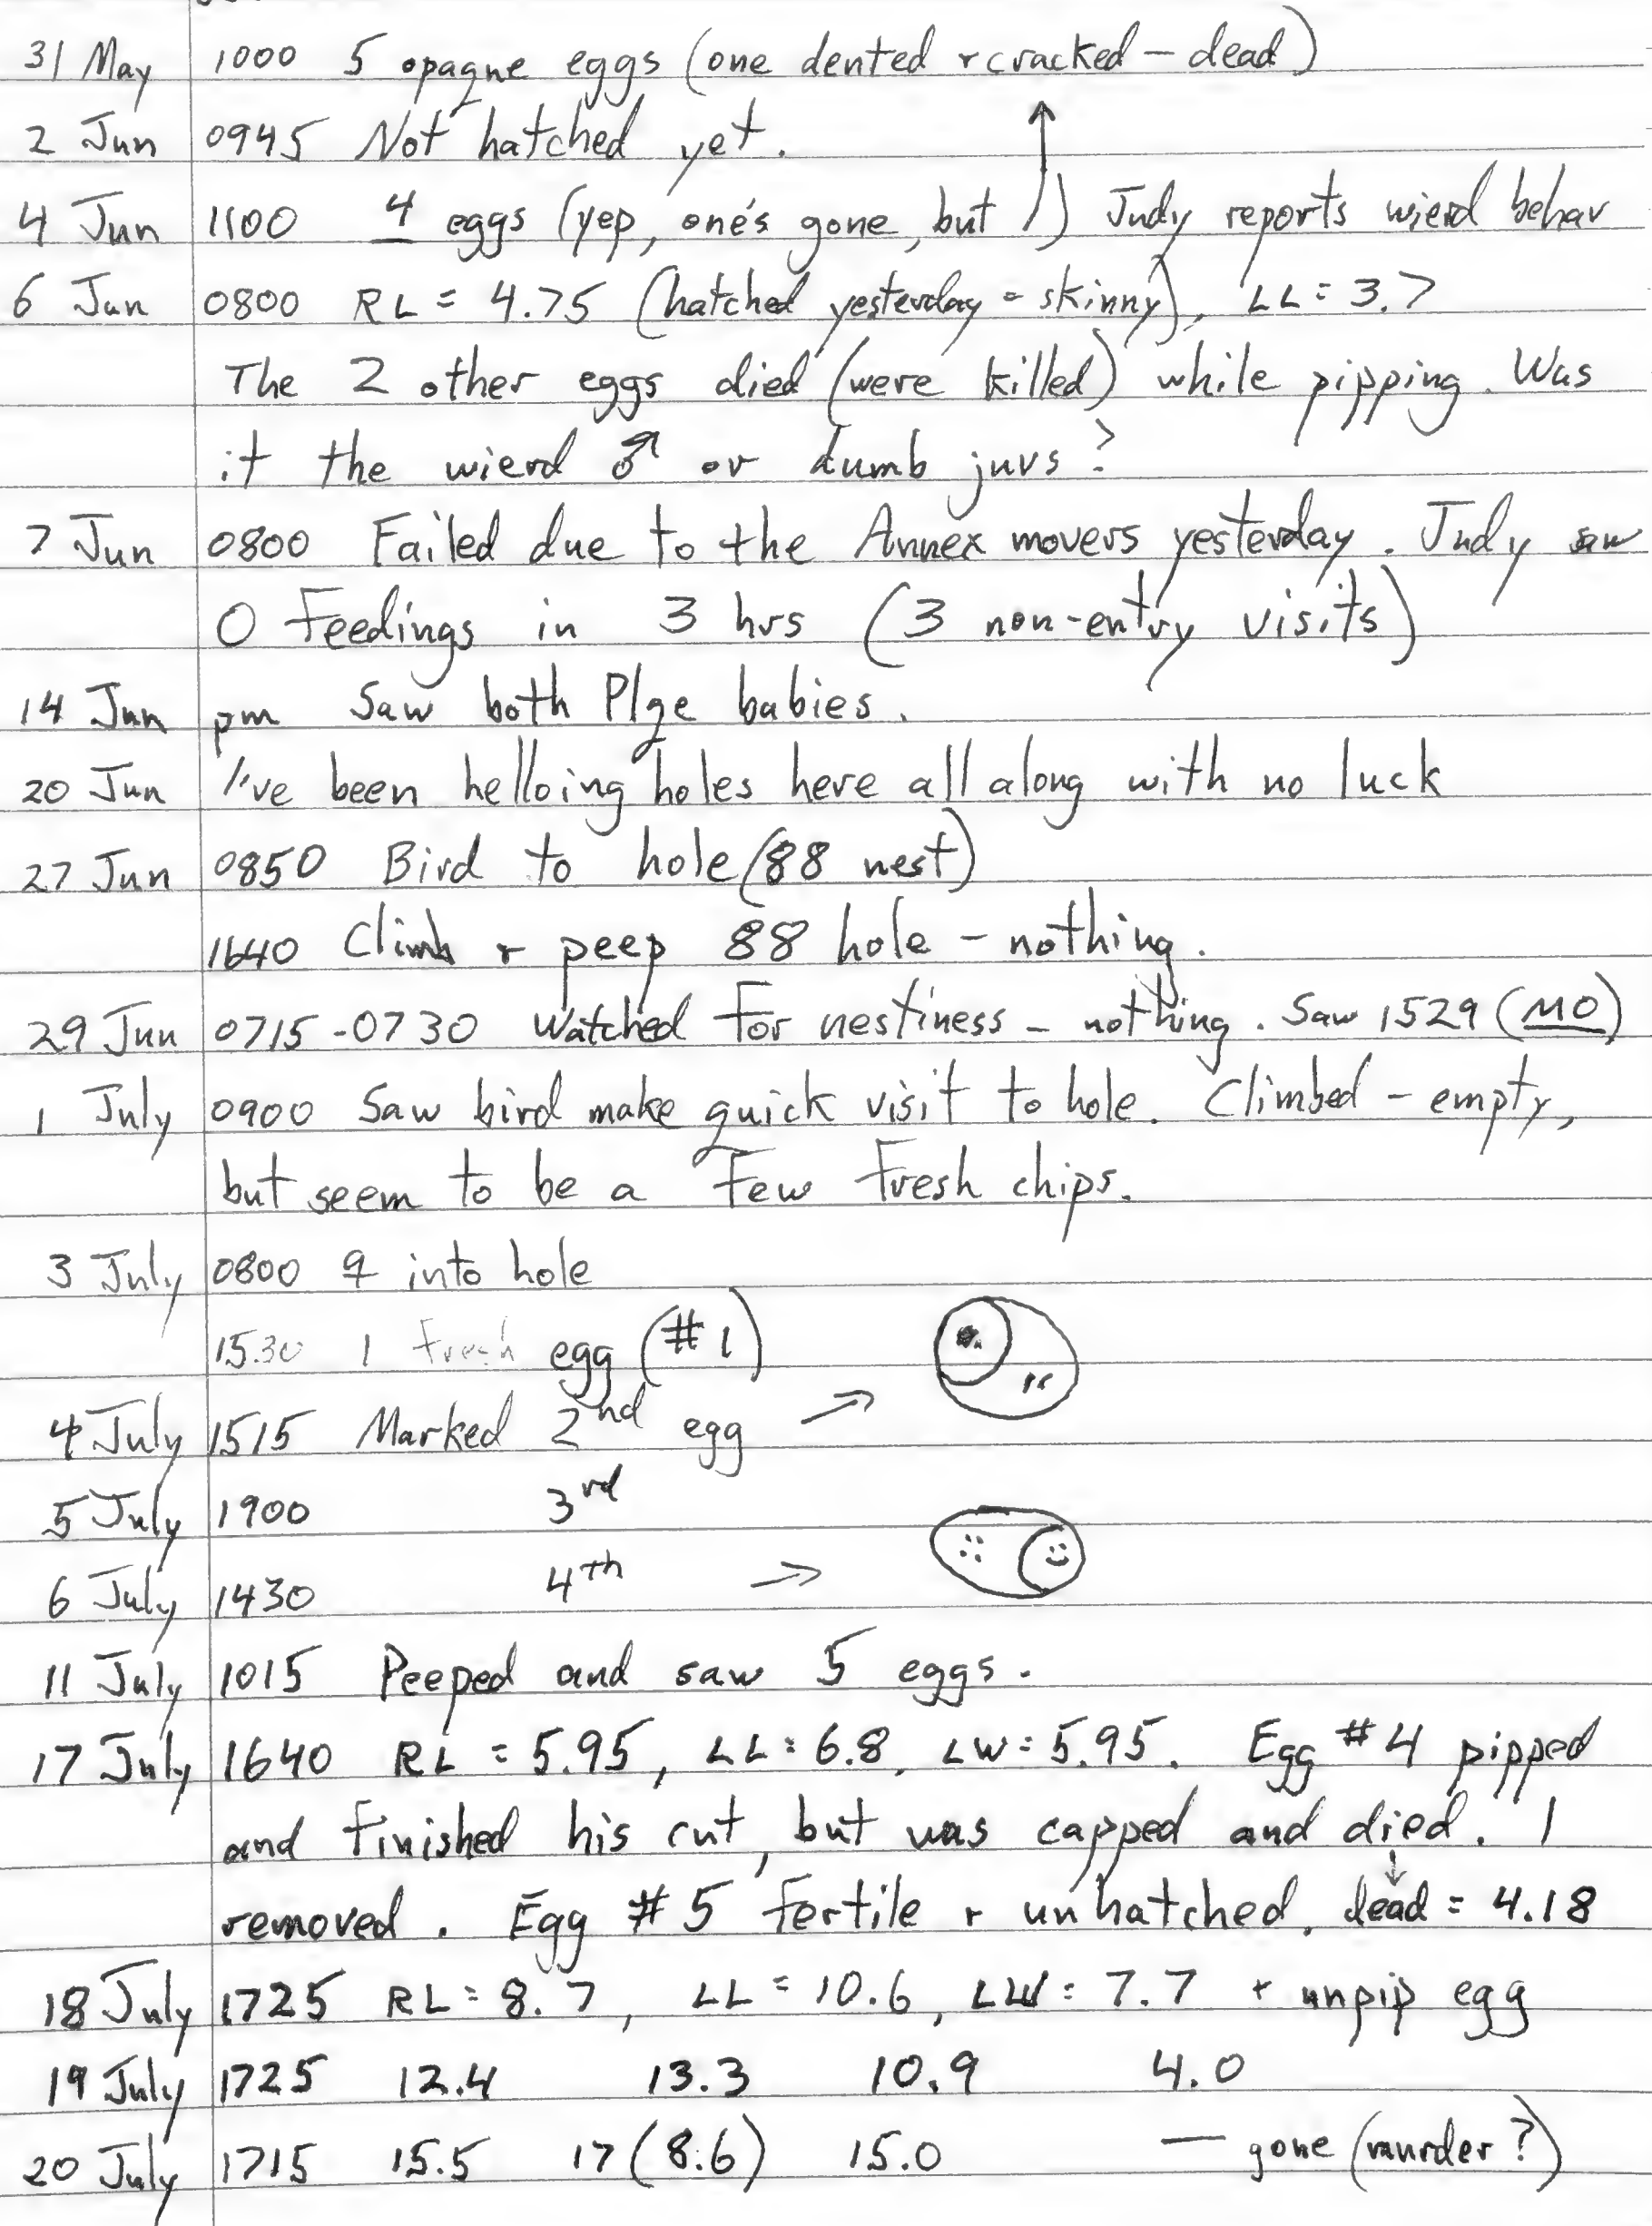 31 May 1000 5 opaque eggs (one dented + cracked – dead)
2 Jun 0945 Not hatched yet.
4 Jun 1100 4 eggs (yep, one's gone, but ↑) Judy reports wierd behav
6 Jun 0800 RL = 4.75 (hatched yesterday = skinny), LL = 3.7
The 2 other eggs died (were killed) while pipping. Was
it the wierd ♂ or dumb juvs?
7 Jun 0800 Failed due to the Annex movers yesterday. Judy saw
0 Feedings in 3 hrs (3 non-entry visits)
14 Jun pm Saw both Plge babies.
20 Jun I've been helloing holes here all along with no luck
27 Jun 0850 Bird to hole (88 nest)
1640 Climb + peep 88 hole – nothing.
29 Jun 0715-0730 Watched for nestiness – nothing. Saw 1529 (MO)
1 July 0900 Saw bird make quick visit to hole. Climbed – empty,
but seem to be a few fresh chips.
3 July 0800 ♀ into hole
1530 1 fresh egg (#1)
4 July 1515 Marked 2nd egg →
5 July 1900 3rd
6 July 1430 4th →
11 July 1015 Peeped and saw 5 eggs.
17 July 1640 RL = 5.95, LL = 6.8, LW = 5.95. Egg #4 pipped
and finished his cut, but was capped and died. I
removed. Egg #5 fertile + unhatched. ↓ dead = 4.18
18 July 1725 RL = 8.7, LL = 10.6, LW = 7.7 + unpip egg
19 July 1725 12.4 13.3 10.9 4.0
20 July 1715 15.5 17 (8.6) 15.0 — gone (murder?)